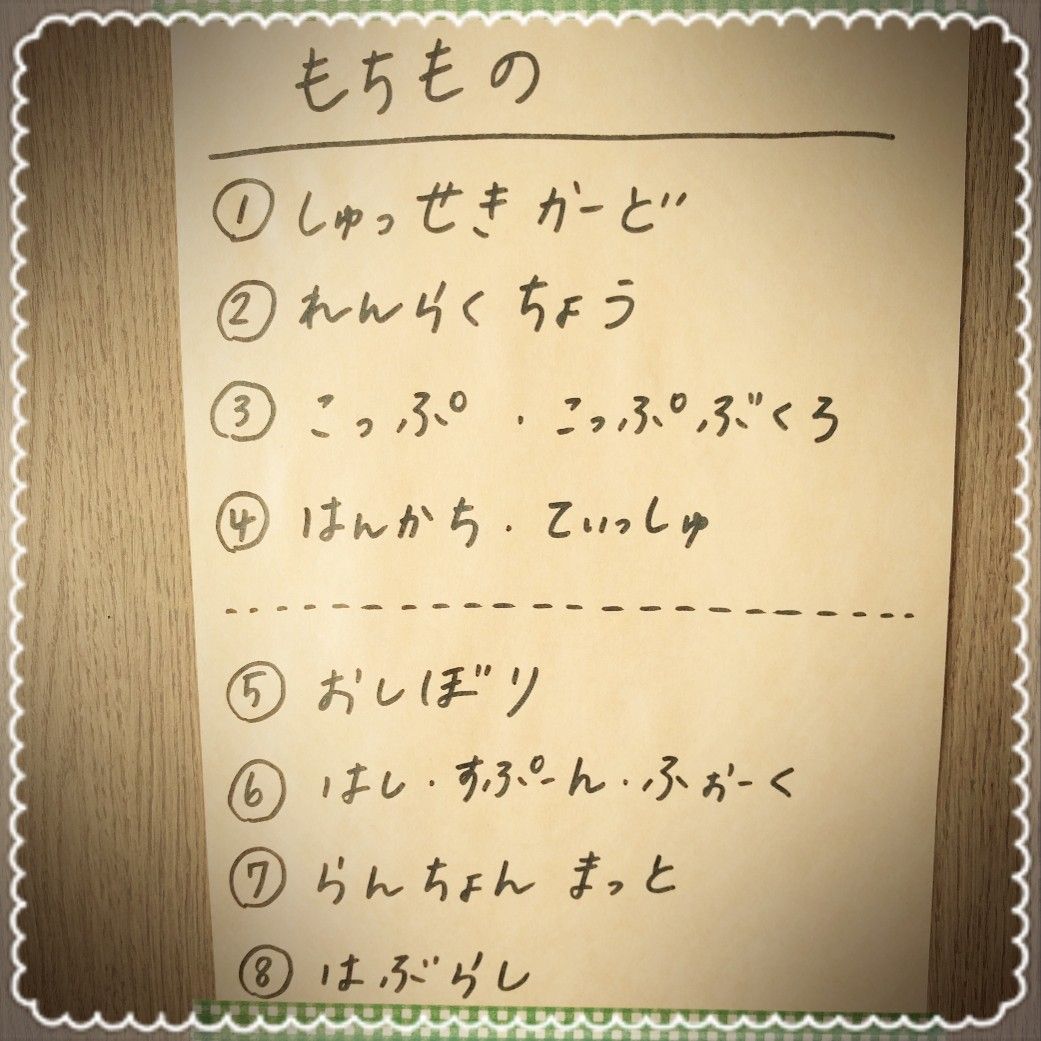 もちもの
① しゅっせき かーど
② れんらく ちょう
③ こっぷ ・ こっぷ ぶくろ
④ はんかち ・ てぃっしゅ
⑤ おしぼり
⑥ はし ・ すぷーん ・ ふぉーく
⑦ らんちょん まっと
⑧ はぶらし